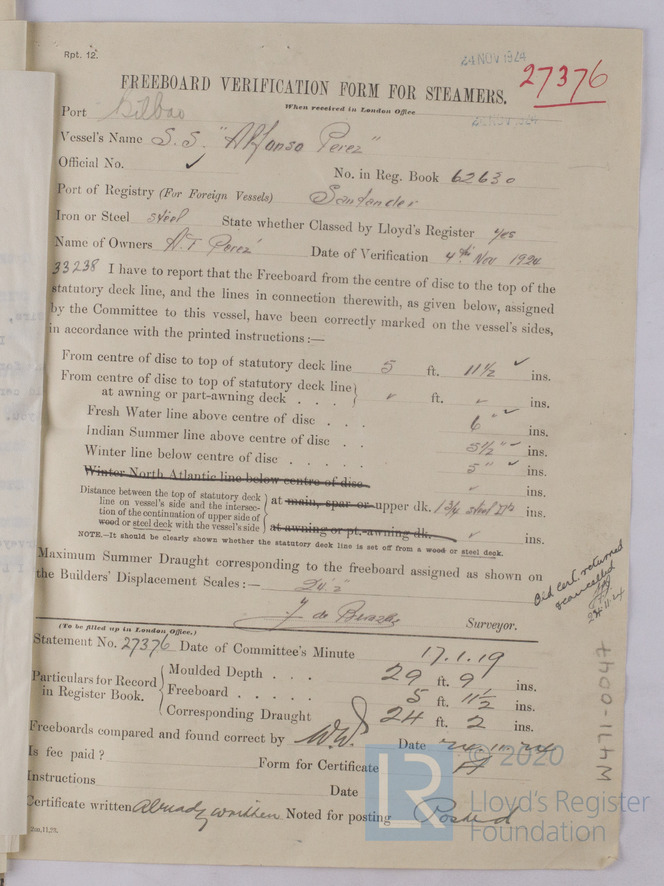 Rpt. 12.
24 NOV 1924
27376
FREEBOARD VERIFICATION FORM FOR STEAMERS.
When received in London Office
Port Bilbao
Vessel's Name S.S. "Alfonso Perez"
Official No. ✓
No. in Reg. Book 62630
Port of Registry (For Foreign Vessels) Santander
Iron or Steel steel State whether Classed by Lloyd's Register yes
Name of Owners A.T. Perez Date of Verification 4th Nov 1924
33238 I have to report that the Freeboard from the centre of disc to the top of the
statutory deck line, and the lines in connection therewith, as given below, assigned
by the Committee to this vessel, have been correctly marked on the vessel's sides,
in accordance with the printed instructions:—
From centre of disc to top of statutory deck line 5 ft. 11½ ✓ ins.
From centre of disc to top of statutory deck line
at awning or part-awning deck . . . ✓ ft. ✓ ins.
Fresh Water line above centre of disc . . . 6" ✓ ins.
Indian Summer line above centre of disc . . 5½" ✓ ins.
Winter line below centre of disc . . . . . 5" ✓ ins.
Winter North Atlantic line below centre of disc ✓ ins.
Distance between the top of statutory deck
line on vessel's side and the intersec-
tion of the continuation of upper side of
wood or steel deck with the vessel's side
at main, spar or upper dk. 1¾ steel Dk ins.
at awning or pt.-awning dk. ✓ ins.
NOTE.—It should be clearly shown whether the statutory deck line is set off from a wood or steel deck.
Maximum Summer Draught corresponding to the freeboard assigned as shown on
the Builders' Displacement Scales:— 24'2"
Old cert. returned
& cancelled
24.11.24
J de Surveyor.
(To be filled up in London Office.)
Statement No. 27376 Date of Committee's Minute 17.1.19
Particulars for Record
in Register Book.
Moulded Depth . . . 29 ft. 9 ins.
Freeboard . . . . . 5 ft. 11½ ins.
Corresponding Draught 24 ft. 2 ins.
Freeboards compared and found correct by W.W. Date
Is fee paid? Form for Certificate
Instructions Date
Certificate written Already written Noted for posting Posted
2oo,11,23.
W471-0047
© 2020
LR
Lloyd's Register
Foundation